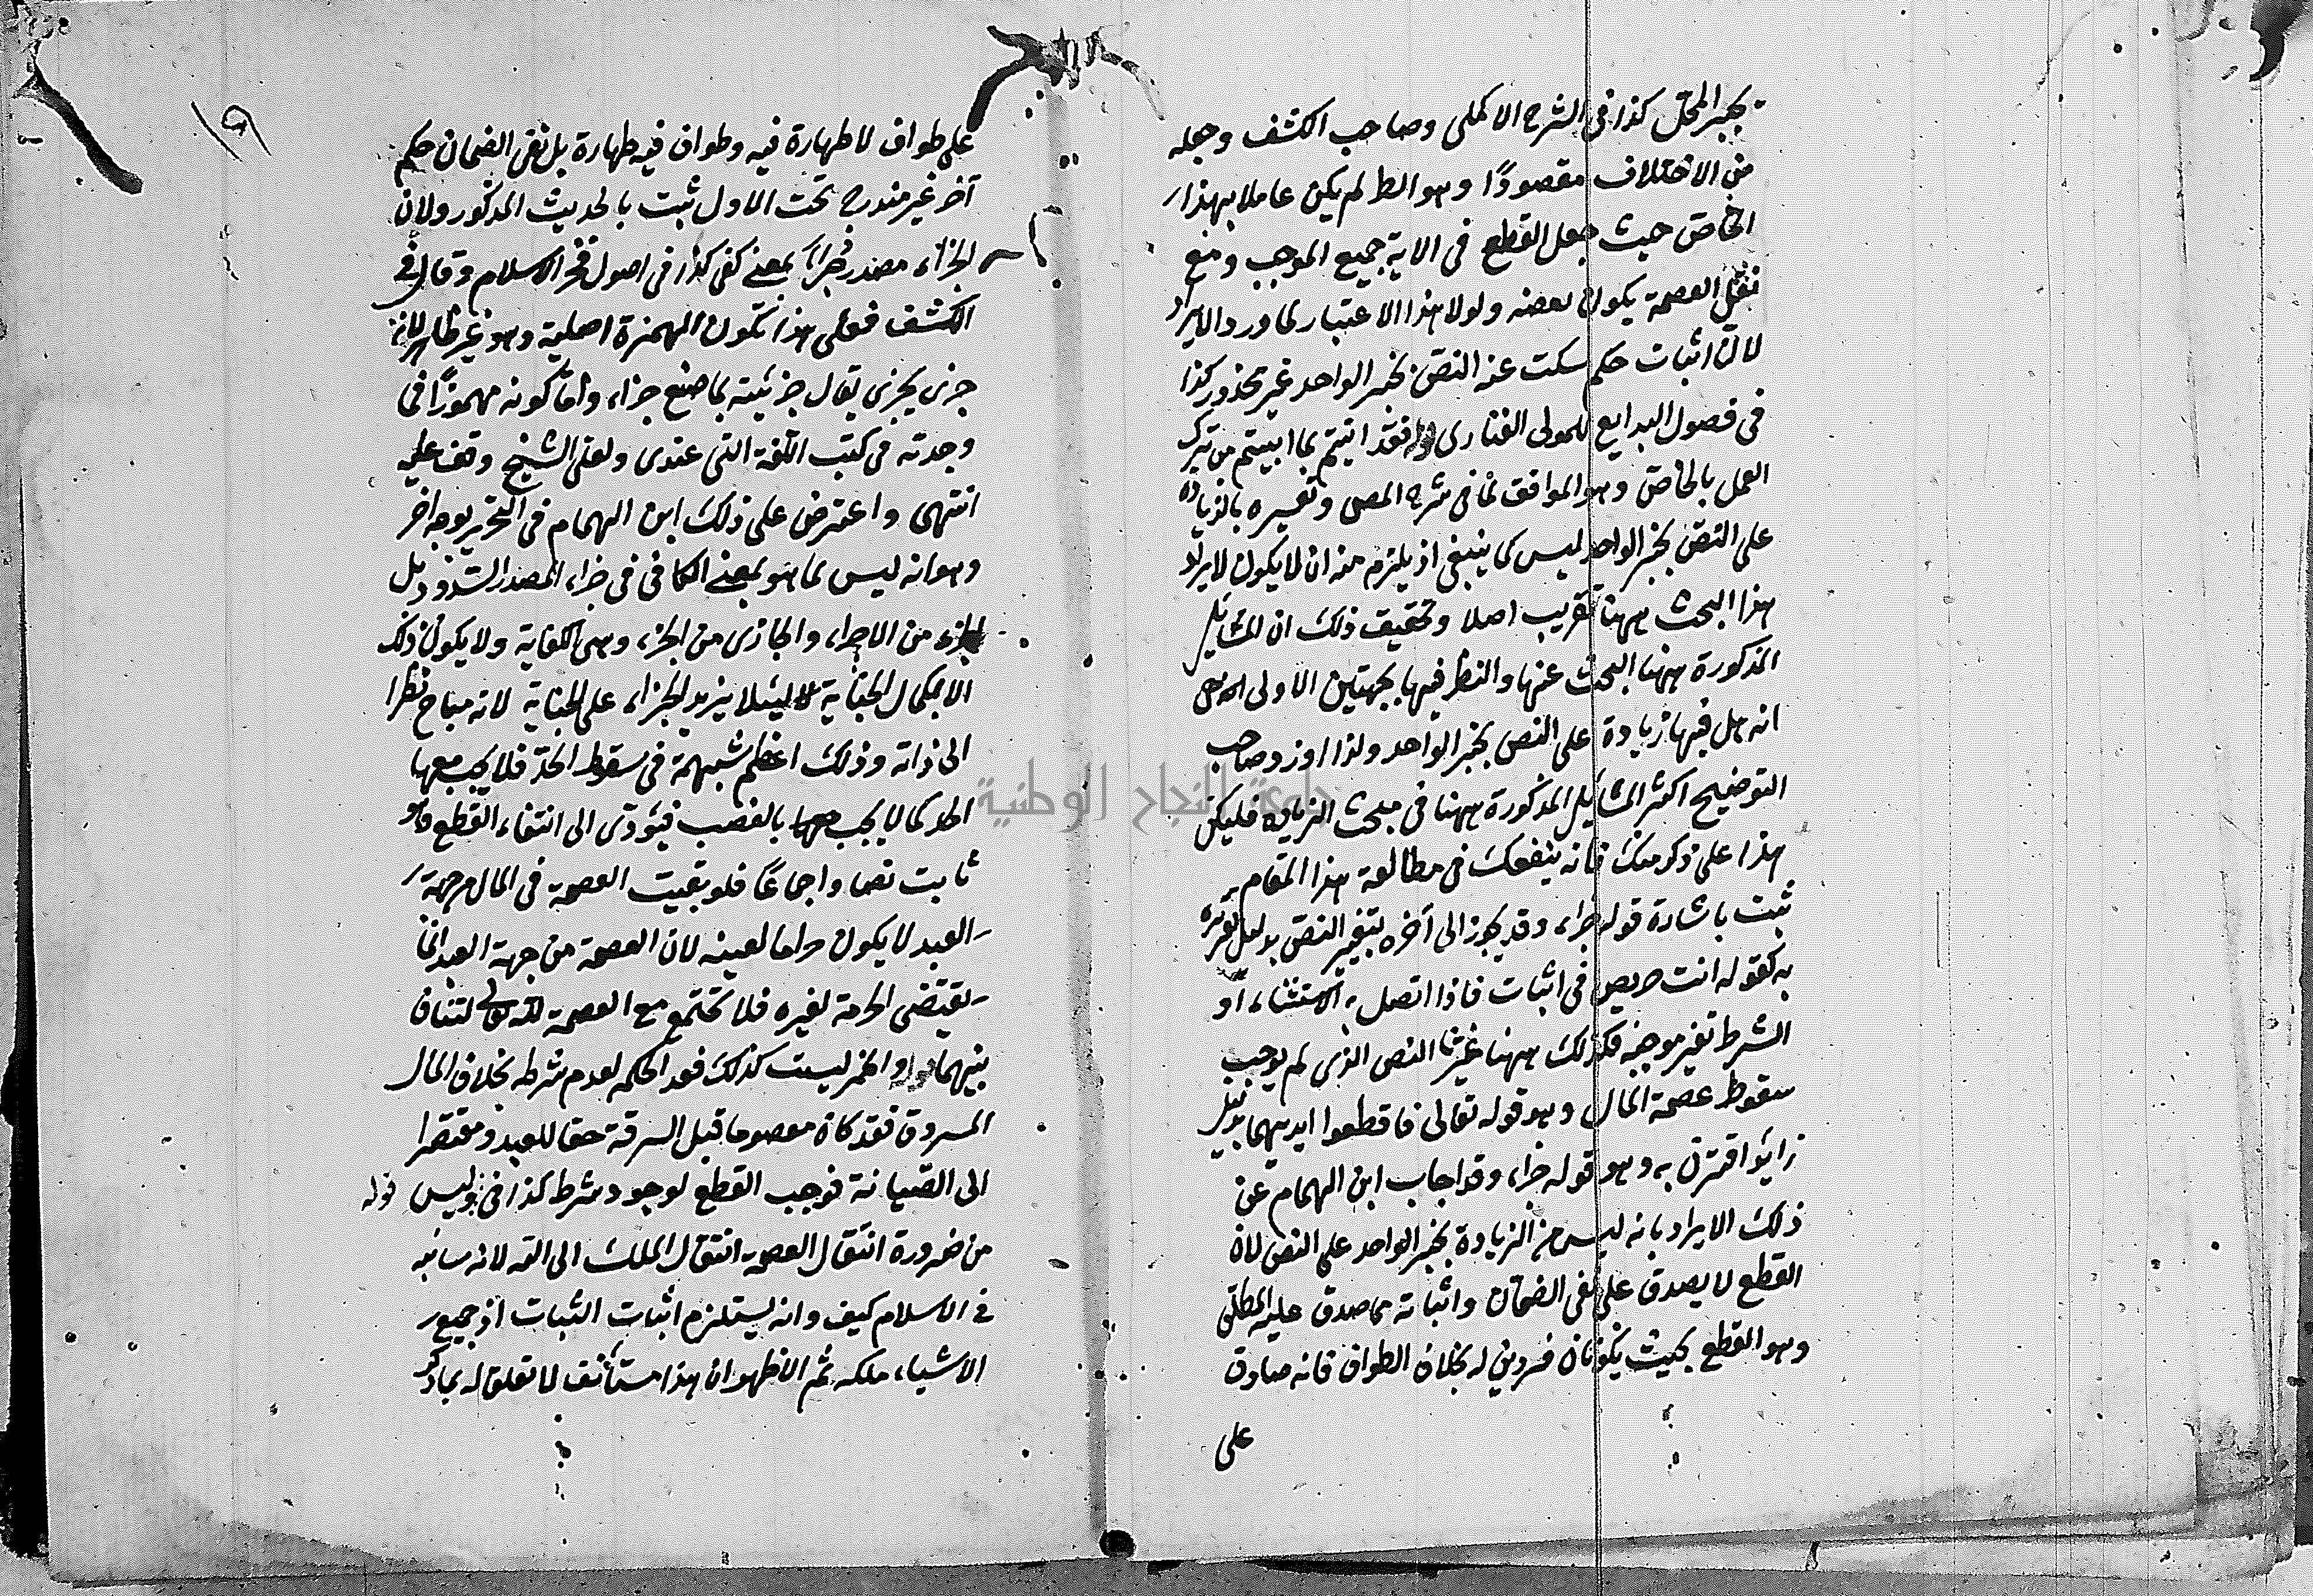 بجبر المحل كذا في الشرح الاكملي وصاحب الكشف وجعله
من الاختلاف مقصودًا وهو الط لم يكن عاملا بهذا
الخاص حيث جعل القطع في الاية جميع الموجب ومع
نقل العصمة يكون بعضه ولولا هذا الاعتبار لما ورد الايراد
لان اثبات حكم سكت عنه النص بخبر الواحد غير محذور كذا
في فصول البدايع للمولى الفناري فقد اتيتم بما ابيتم من ترك
العمل بالخاص وهو الموافق لما في شرح المص وتعبيره بالزيادة
على النص بخبر الواحد ليس كما ينبغي اذ يلزم منه ان لا يكون لايراد
هذا البحث ههنا تقريب اصلا وتحقيق ذلك ان المسائل
المذكورة ههنا البحث عنها والنظر فيها بجهتين الاولى
انه هل فيها زيادة على النص بخبر الواحد ولذا اورد صاحب
التوضيح اكثر المسائل المذكورة ههنا في مبحث الزيادة فليكن
هذا على ذكر منك فانه ينفعك في مطالعة هذا المقام
ثبت باشارة قوله جزاء وقد يجوز الى آخره بتغيير النص بدليل اقترن
به كقوله انت حر نص في اثبات فاذا اتصل به الاستثناء او
الشرط تغير موجبه فكذلك ههنا غيرنا النص الذي لم يوجب
سقوط عصمة المال وهو قوله تعالى فاقطعوا ايديهما بدليل
زايد اقترن به وهو قوله جزاء وقد اجاب ابن الهمام عن
ذلك الايراد بانه ليس من الزيادة بخبر الواحد على النص لان
القطع لا يصدق على نفي الضمان واثباته مما صدق عليه المطلق
وهو القطع بحيث يكونان فردين له بخلاف الطواف فانه صادق
على
١٩
على طواف لا طهارة فيه وطواف فيه طهارة بل نفي الضمان حكم
آخر غير مندرج تحت الاول ثبت بالحديث المذكور ولان
الجزاء مصدر جزأ بمعنى كفى كذا في اصول فخر الاسلام وقال في
الكشف فعلى هذا تكون الهمزة اصلية وهو غير ظاهر لانه
جزى يجزى يقال جزيته بما صنع جزاء واما كونه مهموزًا فما
وجدته في كتب اللغة التي عندي ولعل الشيخ وقف عليه
انتهى واعترض على ذلك ابن الهمام في التحرير بوجه اخر
وهو انه ليس مما هو بمعنى الكافي في جزاء المصدر بل
من الاجزاء والجازى من الجزء وهي الكفاية ولا يكون ذلك
الا بكمال الجناية لئلا يزيد الجزاء على الجناية لانه مباح نظرا
الى ذاته وذلك اعظم شبهة في سقوط الحد فلا يجب معها
الحد كما لا يجب بالغصب فيؤدى الى انتفاء القطع وهو
ثابت نصا واجماعًا فلو بقيت العصمة في المال من جهة
العبد لا يكون حراما لعينه لان العصمة من جهة العبد انما
يقتضى الحرمة لغيره فلا تجتمع مع العصمة لله تعالى لتناف
بينهما والخمر ليست كذلك فعدم الحكم لعدم شرطه بخلاف المال
المسروق فقد كان معصوما قبل السرقة حقا للعبد ومفتقرا
الى الصيانة فوجب القطع لوجود شرط كذا في وليس قوله
من ضرورة انتقال العصمة انتقال الملك الى الله لانه سائبة
في الاسلام كيف وانه يستلزم اثبات الثبات اذ جميع
الاشياء ملكه ثم الاظهر ان هذا مستأنف لا تعلق له بما ذكر
جامعة النجاح الوطنية